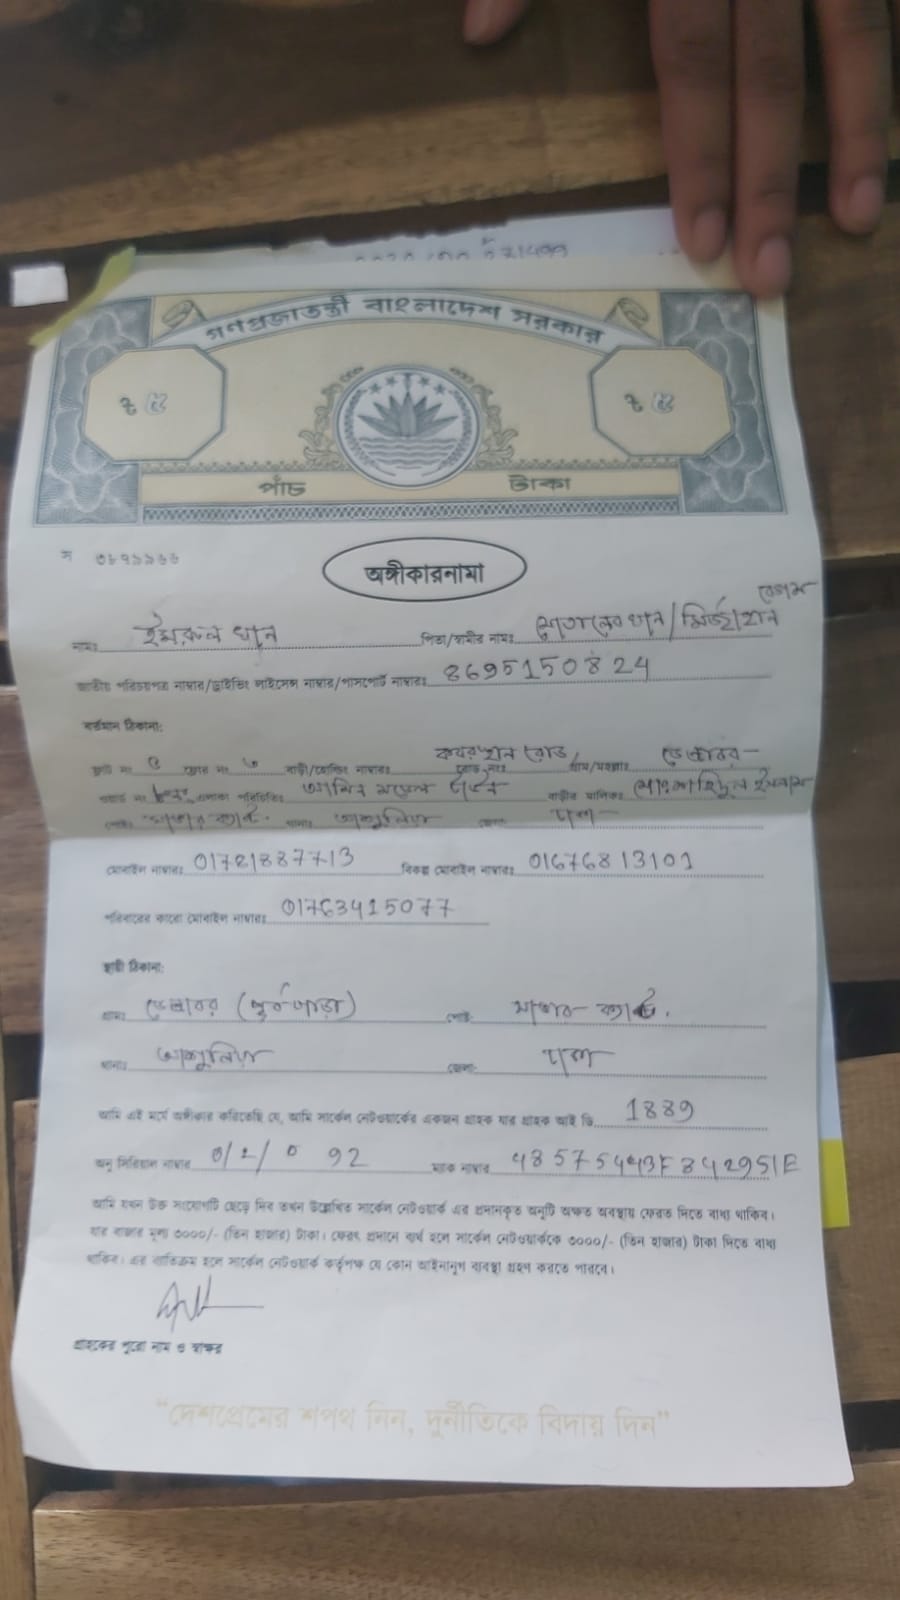 গণপ্রজাতন্ত্রী বাংলাদেশ সরকার
৳ ৫ ৳ ৫
পাঁচ টাকা
অঙ্গীকারনামা
বেগম
নামঃ ইমরুল খান পিতা/স্বামীর নামঃ
জাতীয় পরিচয়পত্র নাম্বার/ড্রাইভিং লাইসেন্স নাম্বার/পাসপোর্ট নাম্বারঃ 8695150824
বর্তমান ঠিকানা:
ফ্লাট নং ফ্লোর নং বাড়ী/হোল্ডিং নাম্বারঃ কবরস্থান রোড, রোড নংঃ গ্রাম/মহল্লাঃ
এলাকা পরিচিতিঃ বাড়ীর মালিকঃ
থানাঃ আশুলিয়া জেলাঃ ঢাকা
মোবাইল নাম্বারঃ 01721887713 বিকল্প মোবাইল নাম্বারঃ 01676813101
পরিবারের কারো মোবাইল নাম্বারঃ 01763415077
স্থায়ী ঠিকানা:
গ্রামঃ (পূর্বপাড়া) পোষ্টঃ সাভার ক্যান্ট.
থানাঃ আশুলিয়া জেলাঃ ঢাকা
আমি এই মর্মে অঙ্গীকার করিতেছি যে, আমি সার্কেল নেটওয়ার্কের একজন গ্রাহক যার গ্রাহক আই ডি 1889
অনু সিরিয়াল নাম্বার ম্যাক নাম্বার
আমি যখন উক্ত সংযোগটি ছেড়ে দিব তখন উল্লেখিত সার্কেল নেটওয়ার্ক এর প্রদানকৃত অনুটি অক্ষত অবস্থায় ফেরত দিতে বাধ্য থাকিব।
যার বাজার মূল্য ৩০০০/- (তিন হাজার) টাকা। ফেরৎ প্রদানে ব্যর্থ হলে সার্কেল নেটওয়ার্ককে ৩০০০/- (তিন হাজার) টাকা দিতে বাধ্য
থাকিব। এর ব্যতিক্রম হলে সার্কেল নেটওয়ার্ক কর্তৃপক্ষ যে কোন আইনানুগ ব্যবস্থা গ্রহণ করতে পারবে।
গ্রাহকের পুরো নাম ও স্বাক্ষর
“দেশপ্রেমের শপথ নিন, দুর্নীতিকে বিদায় দিন”